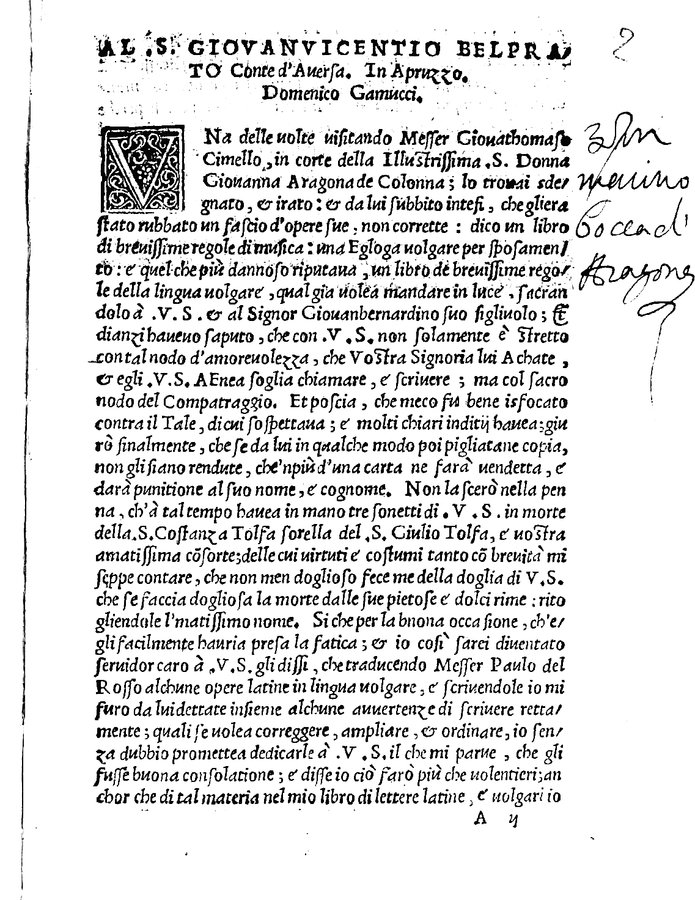 AL .S. GIOVANVICENTIO BELPRA/
TO Conte d'Aversa. In Apruzzo.
Domenico Gamucci.
2
VNa delle uolte uisitando Messer Giouathomaso
Cimello, in corte della Illustrissima .S. Donna
Giouanna Aragona de Colonna; lo trouai sde/
gnato, & irato: & da lui subbito intesi, che gliera
stato rubbato un fascio d'opere sue, non corrette: dico un libro
di breuissime regole di musica: una Egloga uolgare per sposamen/
to: e quel che più dannoso riputaua, un libro de breuissime rego/
le della lingua uolgare, qual gia uolea mandare in luce, sacran
dolo à .V.S. & al Signor Giouanbernardino suo figliuolo; &
dianzi haueuo saputo, che con .V.S. non solamente è stretto
con tal nodo d'amoreuolezza, che Vostra Signoria lui Achate,
& egli .V.S. AEnea soglia chiamare, e scriuere; ma col sacro
nodo del Compatraggio. Et poscia, che meco fu bene isfocato
contra il Tale, di cui sospettaua; e molti chiari inditij hauea; giu
rò finalmente, che se da lui in qualche modo poi pigliatane copia,
non gli siano rendute, che'n più d'una carta ne farà uendetta, e
darà punitione al suo nome, e cognome. Non lascerò nella pen
na, ch'à tal tempo hauea in mano tre sonetti di .V.S. in morte
della .S. Costanza Tolfa sorella del .S. Giulio Tolfa, e uostra
amatissima cõsorte; delle cui uirtuti e costumi tanto cõ breuità mi
seppe contare, che non men doglioso fece me della doglia di V.S.
che se faccia dogliosa la morte dalle sue pietose e dolci rime: rito
gliendole l'matissimo nome. Si che per la buona occasione, ch'e/
gli facilmente hauria presa la fatica; & io cosi' sarei diuentato
seruidor caro à .V.S. gli dissi, che traducendo Messer Paulo del
Rosso alchune opere latine in lingua uolgare, e scriuendole io mi
furo da lui dettate insieme alchune auuertenze di scriuere retta/
mente; quali se uolea correggere, ampliare, & ordinare, io sen/
za dubbio promettea dedicarle à .V.S. il che mi parue, che gli
fusse buona consolatione; e disse io ciò farò più che uolentieri; an
chor che di tal materia nel mio libro di lettere latine, e uolgari io
A ij